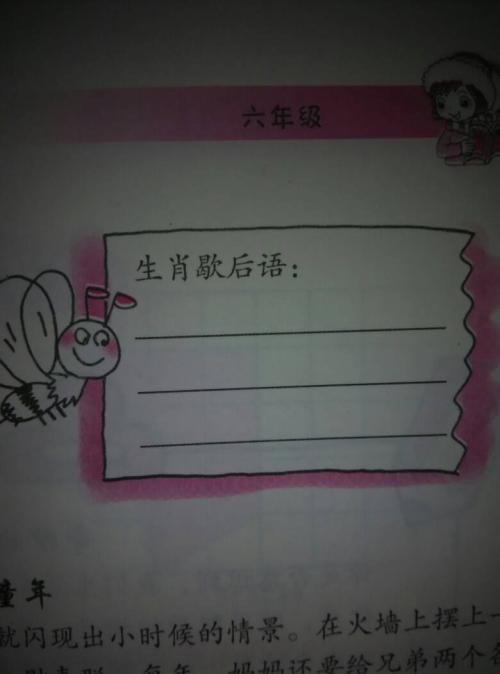 六年级
生肖歇后语：
童年
就闪现出小时候的情景。在火墙上摆上一
每年，妈妈还要给兄弟两个